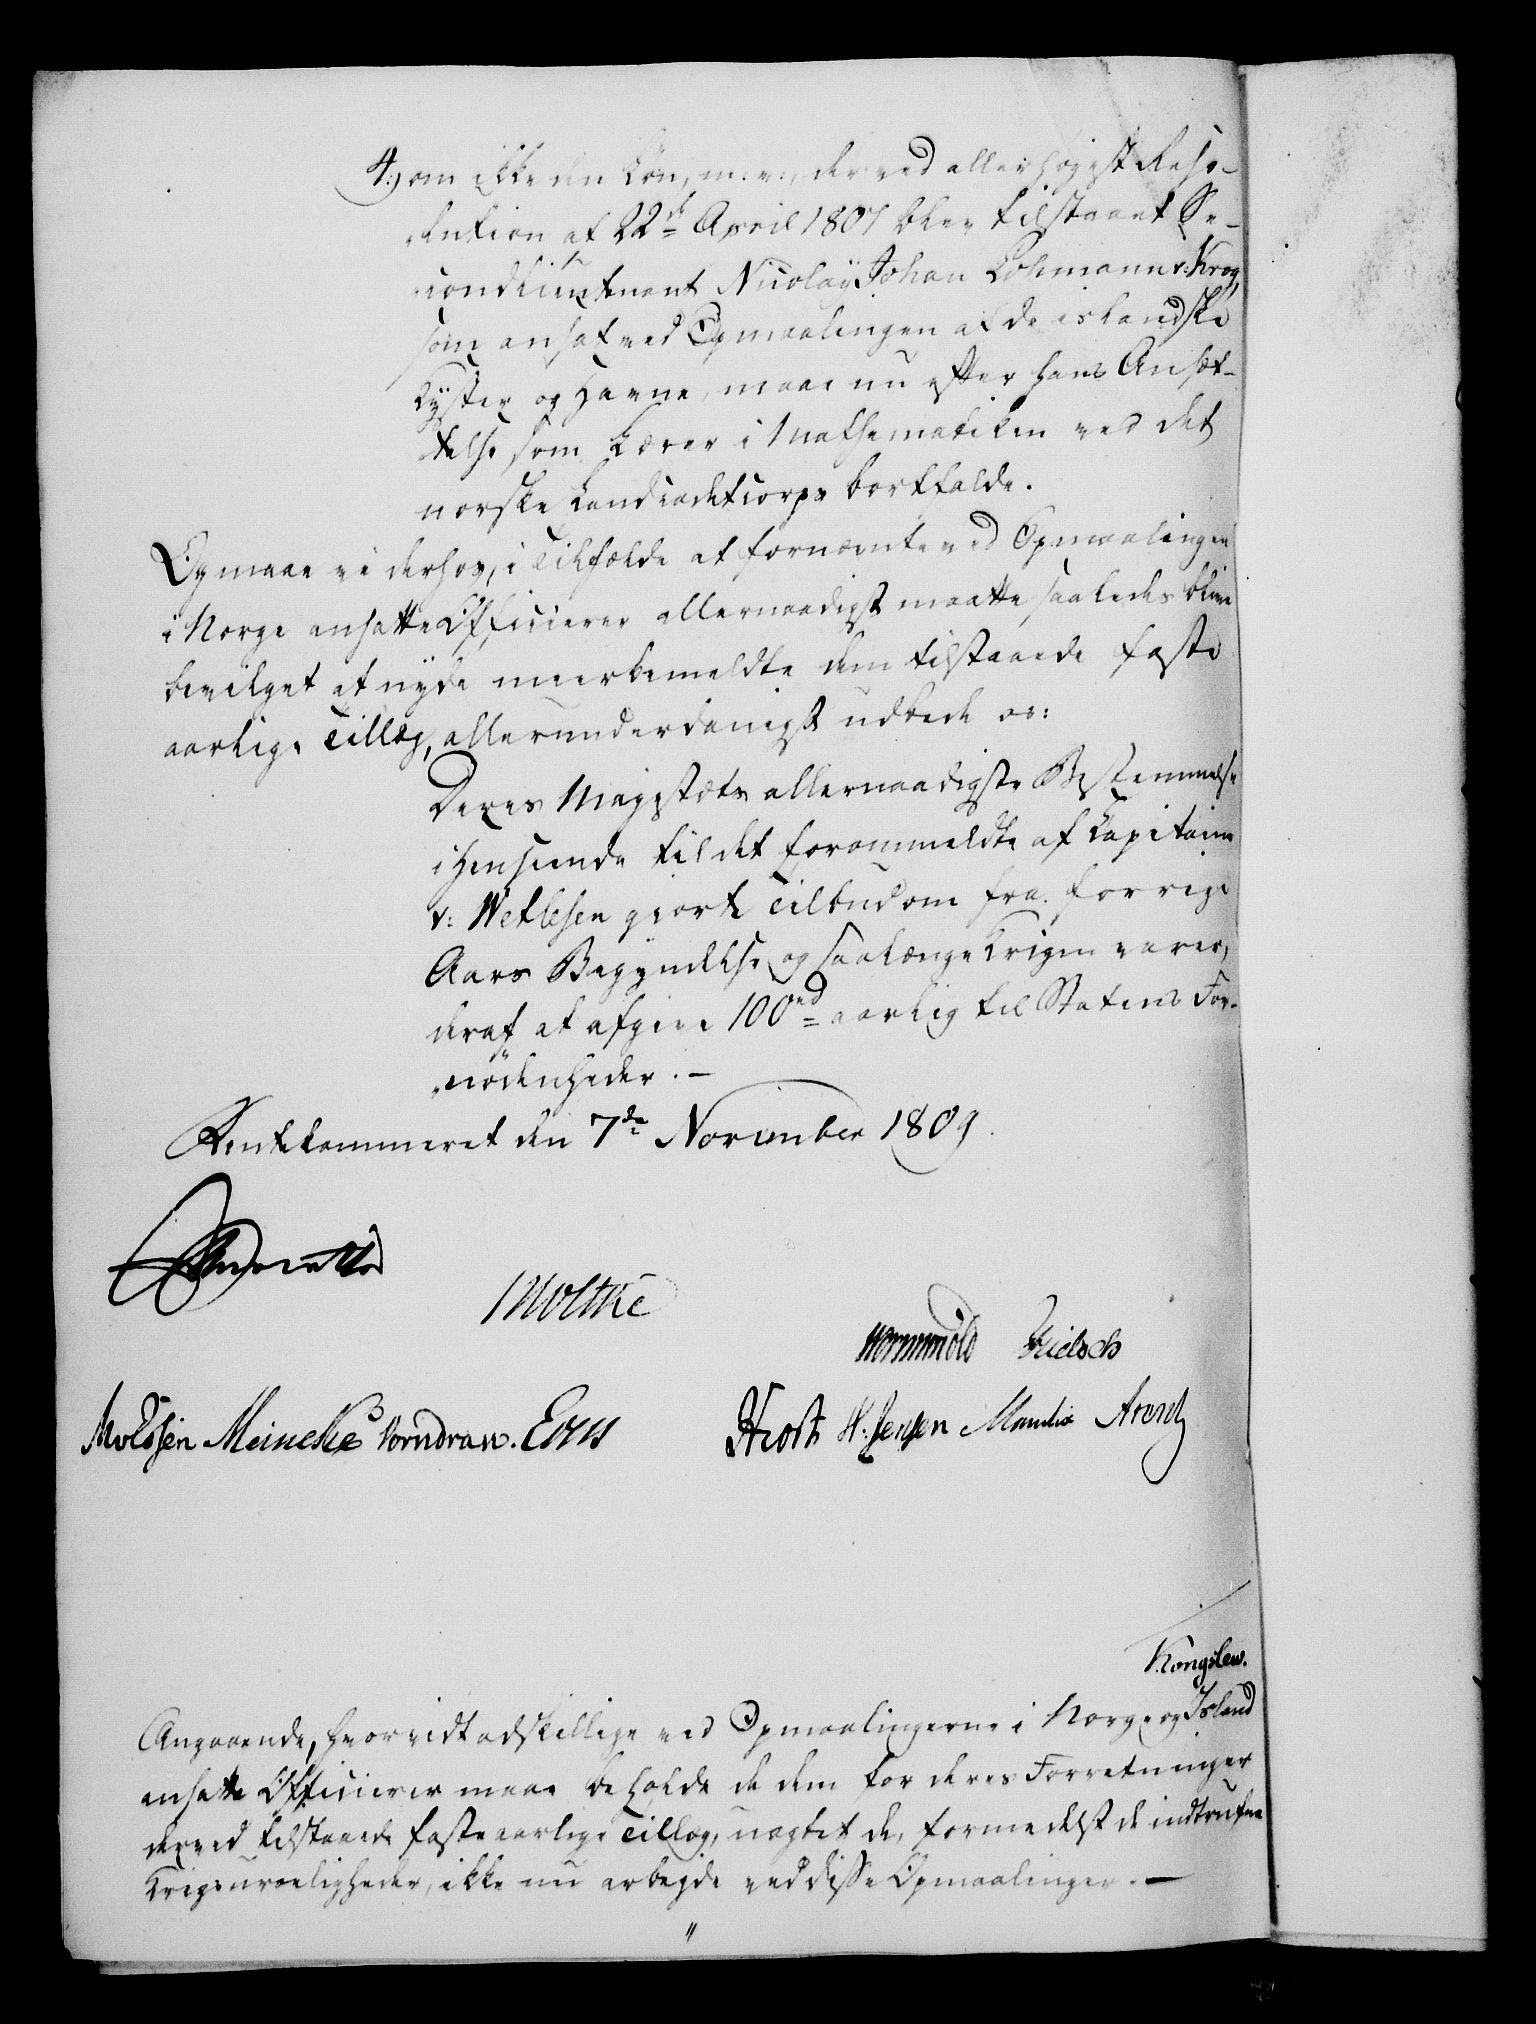 4.) om ikke den Løn, m: v:, der ved allerhøyst Reso-
lution af 22de April 1807 blev tilstaaet Se-
condlieutenant Nicolay Johan Lohmann v: Krog,
som ansat ved Opmaalingen af de islandske
Kyster og Havne, maae nu efter hans Ansæt-
telse som Lærer i Mathematiken ved det
norske Landcadetcorps bortfalde.
Og maae vi derhos, i Tilfælde at fornævnte ved Opmaalingen
i Norge ansatte Officierer allernaadigst maatte saaledes blive
bevilget at nyde meerbemeldte dem tilstaaede faste
aarlige Tillæg, allerunderdanigst udbede os:
Deres Majestæts allernaadigste Bestemmelse
i Henseende til det forommeldte af Capitaine
v: Wetlesen giorte Tilbud om fra forrige
Aars Begyndelse og saalænge Krigen varer,
deraf at afgive 100 rd aarlig til Statens For-
nødenheder. —
Rentekammeret den 7de November 1809.
Moltke
Wormskiold
Meincke Vorndran.
Hiort H. Jensen Arentz
Kongslew.
Angaaende, hvorvidt adskillige ved Opmaalingerne i Norge og Island
ansatte Officierer maae beholde de dem for deres Forretninger
derved tilstaaede faste aarlige Tillæg, uagtet de, formedelst de indtrufne
Krigsuroeligheder, ikke nu arbejde ved disse Opmaalinger. —